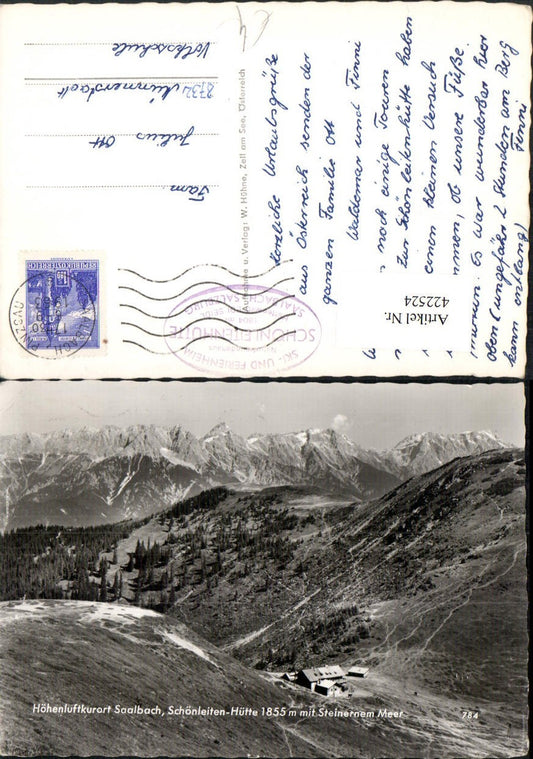 Herzliche Urlaubsgrüße
aus Österreich senden der
ganzen Familie Ott
Waldemar und Finni
noch einige Touren
zur Schönleitenhütte haben
einen kleinen Versuch
ob unsere Füße
Es war wunderbar hier
oben (ungefähr 2 Stunden am Berg
kann entlang) Finni
Fam.
Julius Ott
8732 Münnerstadt
Volksschule
Aufnahme u. Verlag: W. Höhne, Zell am See, Österreich
REPUBLIK ÖSTERREICH
SKI- UND FERIENHEIM
SCHÖNLEITENHÜTTE
Artikel Nr.
422524
Höhenluftkurort Saalbach, Schönleiten-Hütte 1855 m mit Steinernem Meer
784